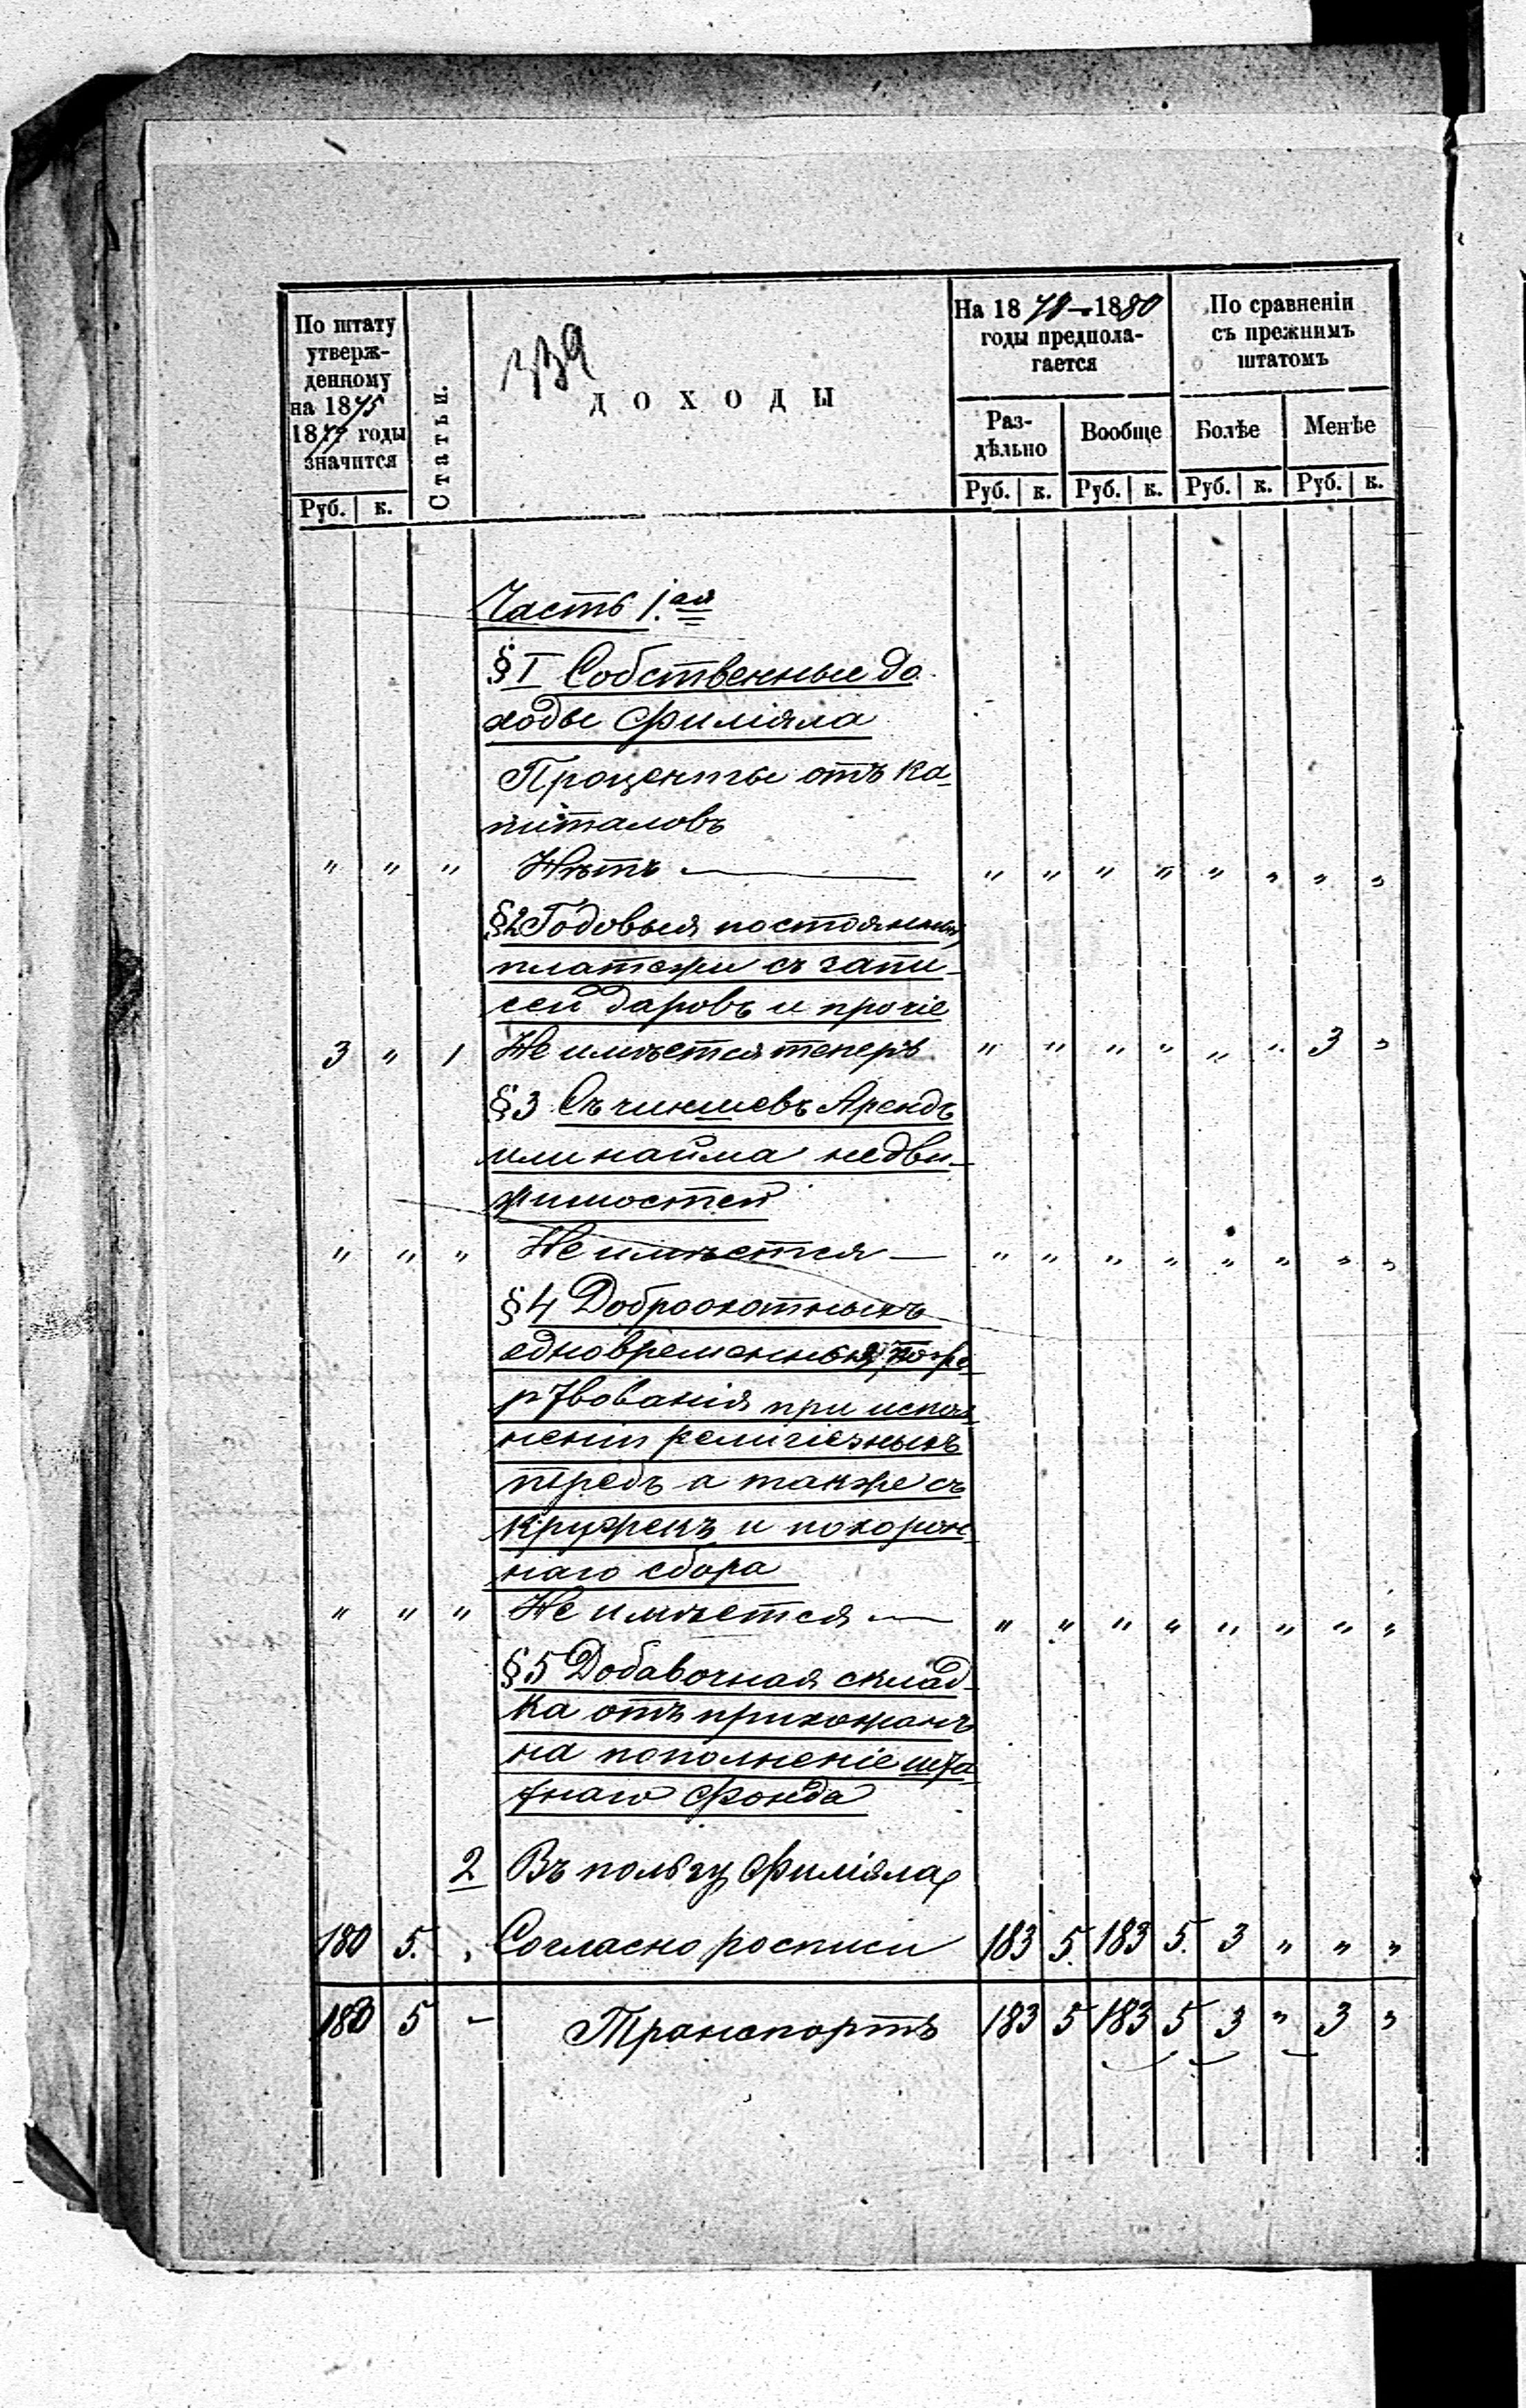 По штату
утверж-
денному
на 1875
1877 годы
значится
Руб. к.
Статьи.
339
ДОХОДЫ
На 1878-1880
годы предпола-
гается
Раз-
дѣльно
Вообще
Руб. к. Руб. к.
По сравненіи
съ прежнимъ
штатомъ
Болѣе
Менѣе
Руб. к. Руб. к.
Часть 1.ая
§ I Собственные до
ходы Филіяла
Проценты отъ ка-
питаловъ
" " " Нѣтъ — " " " " " " " "
§ 2 Годовыя постоянныя
платежи съ запи-
сей даровъ и прочіе
3 " 1 Не имѣется теперь " " " " " " 3 "
§ 3 Съ чиншевъ Арендъ
или найма недви-
жимостей
" " " Не имѣется — " " " " " " " "
§ 4 Доброохотныхъ
одновременныя
ртвованія при испол
неніи религіозныхъ
а также съ
кружекъ и похорон-
наго сбора
" " " Не имѣется — " " " " " " " "
§ 5 Добавочная склад-
ка отъ прихожанъ
на пополненіе шта-
тнаго Фонда
2 Въ пользу Филіяла
180 5. Согласно росписи 183 5. 183 5. 3 " " "
180 5 - Транспортъ 183 5 183 5 3 " 3 "